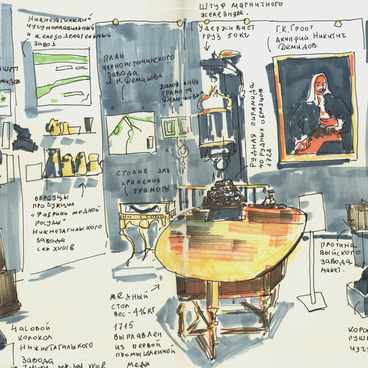 Нижнетагильский
чугуноплавильный
и железоделательный
завод
План
Черноисточинского
завода
А.Н. Демидова
Жалованная
грамота
Демидовым
Штуф магнитного
железняка.
Удерживает
груз 50 кг
Г.К. Гроот
Акинфий Никитич
Демидов.
Рудная пирамида
40 рудных образцов
1728
Столик для
хранения
грамоты
Образцы
продукции
"Фабрики медной
посуды"
Нижнетагильского
завода
сер XVIII в
Медный
стол
вес-416 кг
1715
Выплавлен
из первой
промышленной
меди
Плотина
Выйского
завода
макет.
Часовой
колокол
Нижнетагильского
завода